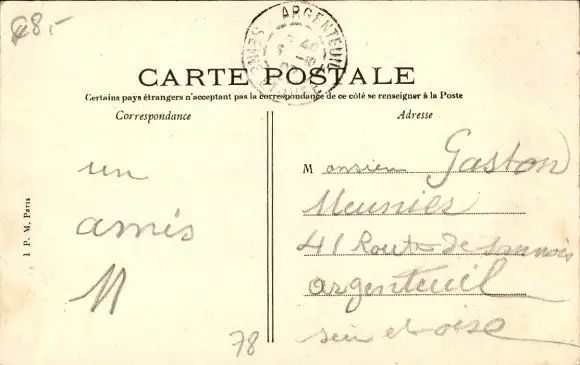 €8,-
ARGENTEUIL
CARTE POSTALE
Certains pays étrangers n'acceptent pas la correspondance de ce côté se renseigner à la Poste
Correspondance
Adresse
un
amis
M
Monsieur Gaston
Meunier
41 Route de Sannois
argenteuil
sein et oise
I P. M, Paris
78